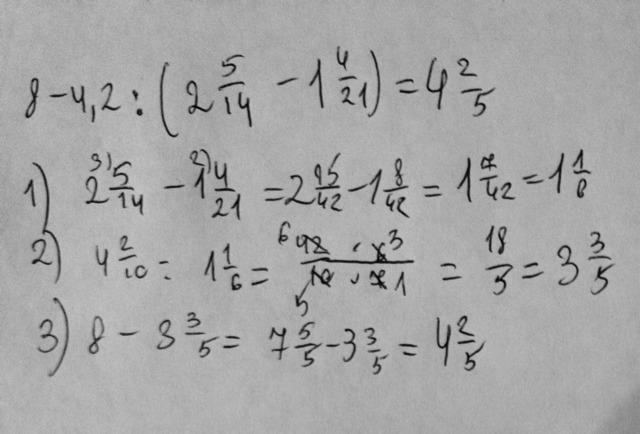 8 - 4,2 : (2 5/14 - 1 4/21) = 4 2/5
1) 2 5/14 3) - 1 4/21 2) = 2 15/42 - 1 8/42 = 1 7/42 = 1 1/6
2) 4 2/10 : 1 1/6 = 6 42 · 6 3 / 5 10 · 7 1 = 18/5 = 3 3/5
3) 8 - 3 3/5 = 7 5/5 - 3 3/5 = 4 2/5